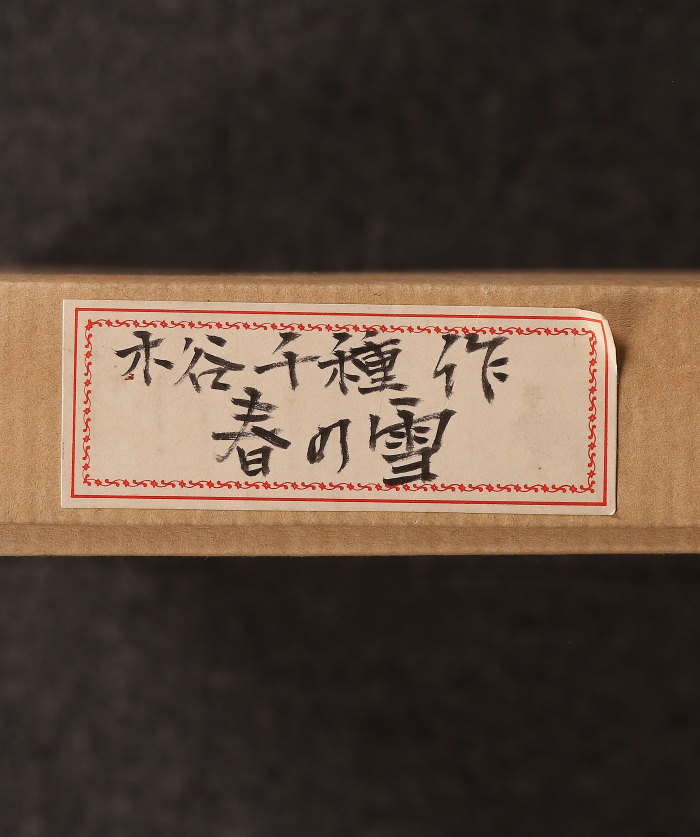 木谷千種 作
春の雪